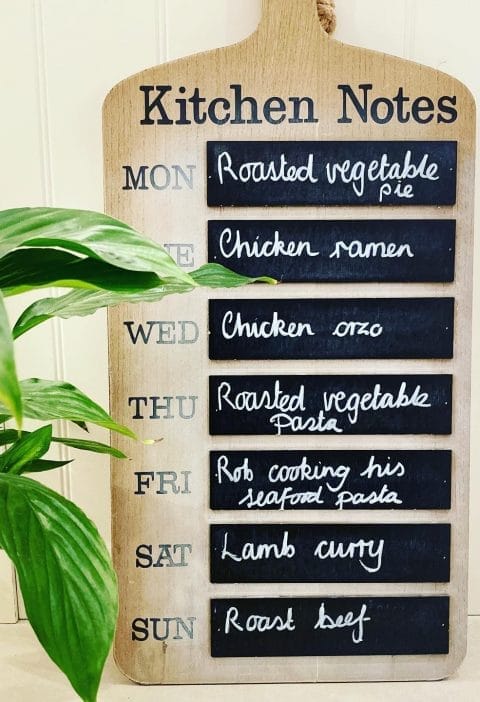 Kitchen Notes
MON Roasted vegetable
pie
UE Chicken ramen
WED Chicken orzo
THU Roasted vegetable
Pasta
FRI Rob cooking his
seafood pasta
SAT Lamb curry
SUN Roast beef